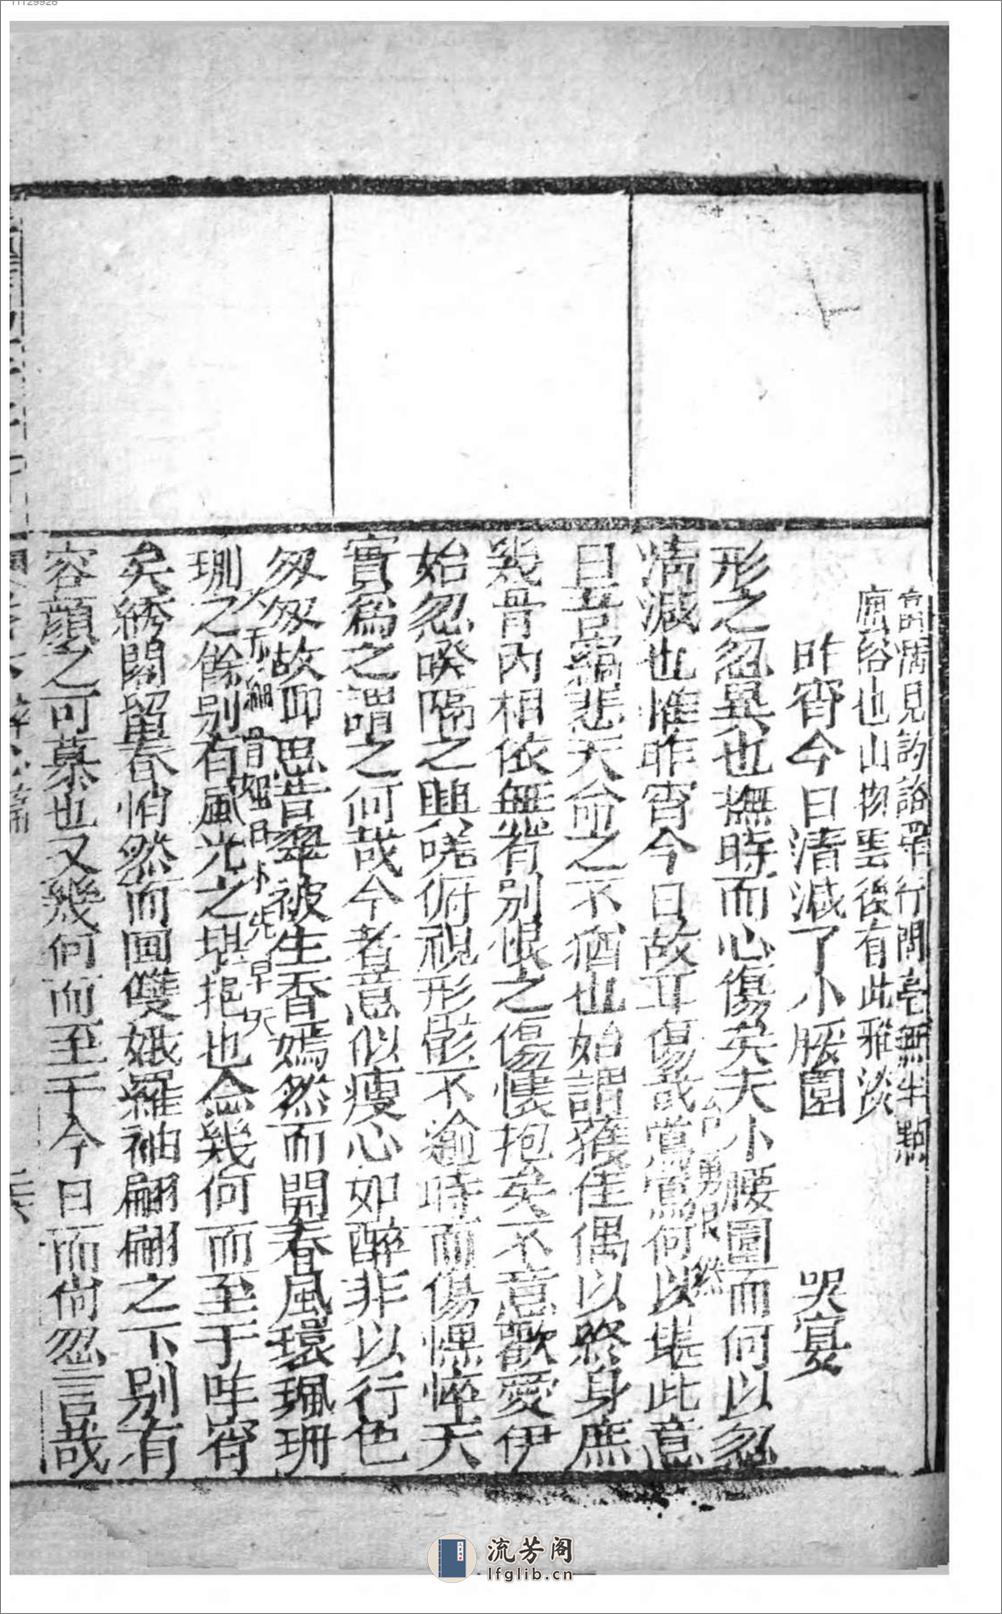 風俗也山物雲後有此雅淡
昨宵今日清減了小腰圍　哭宴
形之忽異也撫時而心傷矣夫小腰圍而何以忽
淸減也惟昨宵今日故耳傷哉鶯鶯何以堪此意
曰吾竊悲天命之不猶也始謂獲佳偶以終身庶
幾骨肉相依無有別恨之傷懷抱矣不意歡愛伊
始忽睽隔之興嗟俯視形影不逾時而傷憔悴天
實為之謂之何哉今者意似癡心如醉非以行色
匆匆故卽思昔翠被生香嫣然而開春風環珮珊
珊之餘別有風光之堪挹也念幾何而至于昨宵
矣綉閣留春悄然而回雙娥羅袖翩翩之下別有
容顏之可慕也又幾何而至于今日而尙忽言哉
流芳阁
lfglib.cn